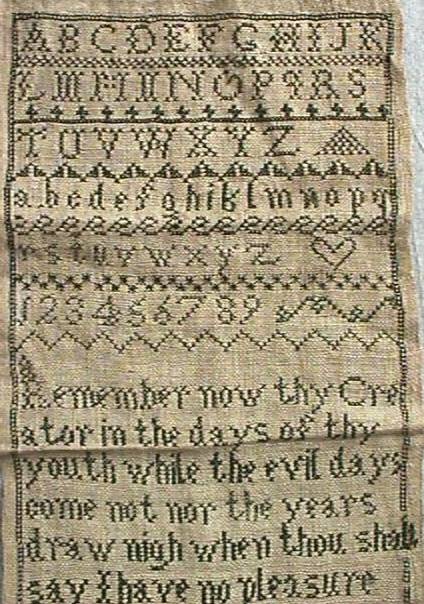 A B C D E F G H I J K
L M N O P Q R S
T U V W X Y Z
a b c d e f g h i k l m n o p q
r s t u v w x y z
1 2 3 4 5 6 7 8 9
Remember now thy Cre
ator in the days of thy
youth while the evil days
come not nor the years
draw nigh when thou shalt
say I have no pleasure